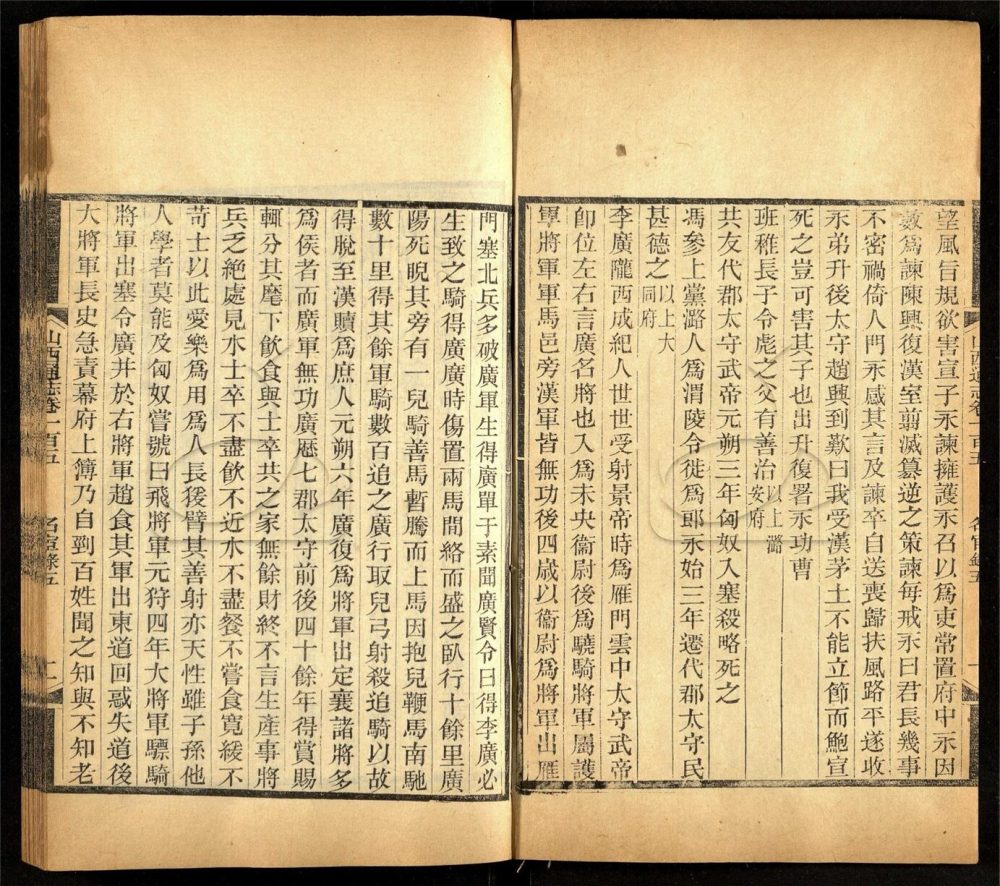 望風旨規欲害宣子永諫擁護永召以爲吏常置府中永因
數爲諫陳興復漢室翦滅篡逆之策諫每戒永曰君長幾事
不密禍倚人門永感其言及諫卒自送喪歸扶風路平遂收
永弟升後太守趙興到歎曰我受漢茅土不能立節而鮑宣
死之豈可害其子也出升復署永功曹
班稚長子令彪之父有善治以上潞安府
共友代郡太守武帝元朔三年匈奴入塞殺略死之
馮參上黨潞人爲渭陵令徙爲郎永始三年遷代郡太守民
甚德之以上大同府
李廣隴西成紀人世世受射景帝時爲雁門雲中太守武帝
卽位左右言廣名將也入爲未央衞尉後爲驍騎將軍屬護
軍將軍軍馬邑旁漢軍皆無功後四歲以衞尉爲將軍出雁
山西通志卷一百五 名宦錄五 一
門塞北兵多破廣軍生得廣單于素聞廣賢令曰得李廣必
生致之騎得廣廣時傷置兩馬閒絡而盛之臥行十餘里廣
陽死睨其旁有一兒騎善馬暫騰而上馬因抱兒鞭馬南馳
數十里得其餘軍騎數百追之廣行取兒弓射殺追騎以故
得脫至漢贖爲庶人元朔六年廣復爲將軍出定襄諸將多
爲侯者而廣軍無功廣歷七郡太守前後四十餘年得賞賜
輒分其麾下飮食與士卒共之家無餘財終不言生產事將
兵乏絶處見水士卒不盡飮不近水不盡餐不嘗食寬緩不
苛士以此愛樂爲用爲人長猨臂其善射亦天性雖子孫他
人學者莫能及匈奴嘗號曰飛將軍元狩四年大將軍驃騎
將軍出塞令廣并於右將軍趙食其軍出東道回惑失道後
大將軍長史急責幕府上簿乃自剄百姓聞之知與不知老
山西通志卷一百五 名宦錄五 二